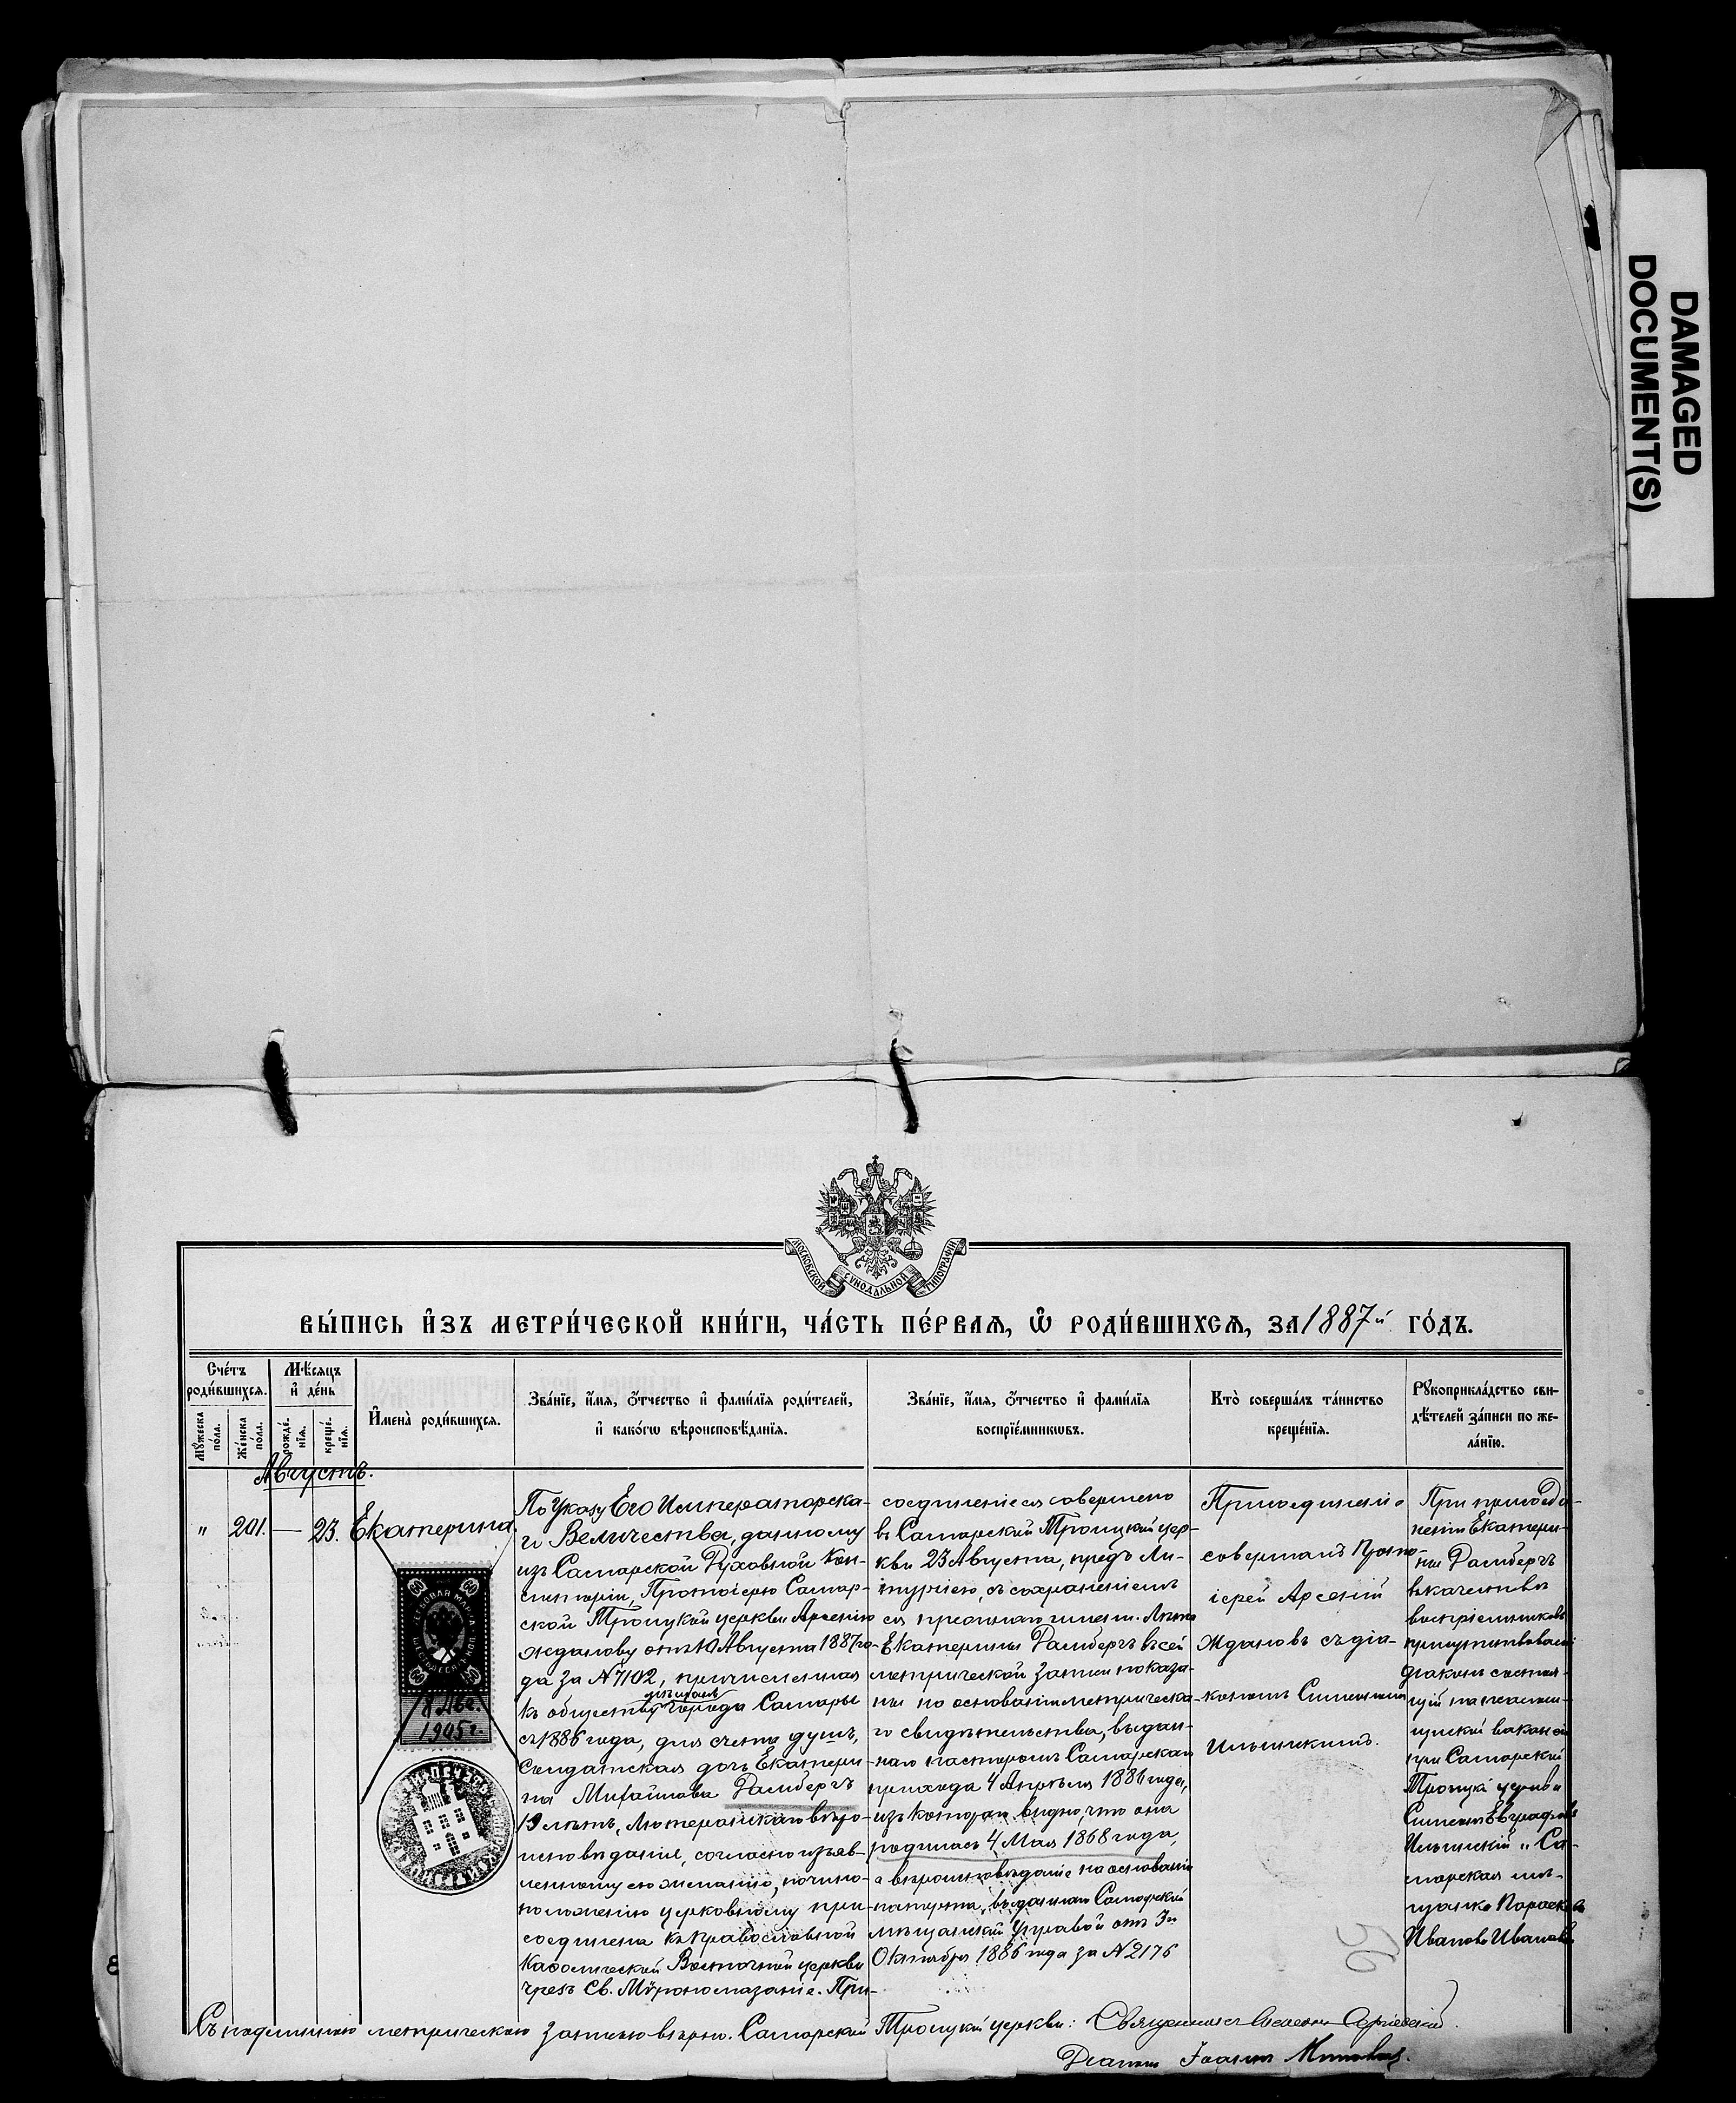 DAMAGED
DOCUMENT(S)
МОСКОВСКОЙ СѴНОДАЛЬНОЙ ТИПОГРАФІИ
ВЫ́ПИСЬ И҆ЗЪ МЕТРИ́ЧЕСКОЙ КНИ́ГИ, ЧА́СТЬ ПЕ́РВАѦ, Ѡ҆ РОДИ́ВШИХСѦ, ЗА 1887й ГО́ДЪ.
Сче́тъ
роди́вшихсѧ.
Мꙋ́жеска
по́ла.
Же́нска
по́ла.
Мѣ́сѧцъ
и҆ де́нь
рожде́-
нїѧ.
креще́-
нїѧ.
И҆мена̀ роди́вшихсѧ.
Зва́нїе, и҆́мѧ, ѻ҆́тчество и҆ фами́лїѧ роди́телей,
и҆ како́гѡ вѣроисповѣ́данїѧ.
Зва́нїе, и҆́мѧ, ѻ҆́тчество и҆ фами́лїѧ
воспрїе́мникѡвъ.
Кто̀ соверша́лъ та́инство
креще́нїѧ.
Рꙋкоприкла́дство сви-
дѣ́телей за́писи по же-
ла́нїю.
Августъ.
" 201. — 23. Екатерина.
8 Авг.
1905 г.
По Указу Его Императорска-
го Величества, данному
изъ Самарской Духовной Кон-
систоріи, Протоіерею Самар-
ской Троицкой церкви Арсенію
Жданову отъ 10 Августа 1887 го-
да за № 7102, причисленная
къ обществу мѣщанъ города Самары
съ 1886 года, для счета душъ,
Солдатская дочь Екатери-
на Михайлова Дамбергъ
19 лѣтъ, Лютеранскаго вѣро-
исповѣданія, согласно изъяв-
ленному ею желанію, по чино-
положенію церковному при-
соединена къ православной
Каѳолической Восточной церкви
чрезъ Св. Мѵропомазаніе. При-
соединеніе ея совершено
въ Самарской Троицкой цер-
кви 23 Августа, предъ Ли-
тургіею, съ сохраненіемъ
ея прежняго имени. Лѣта
Екатерины Дамбергъ въ сей
метрической записи показа-
ны на основаніи метрическа-
го свидѣтельства, выдан-
наго пасторомъ Самарскаго
прихода 4 Апрѣля 1886 года,
изъ котораго видно, что она
родилась 4 Мая 1868 года,
а вѣроисповѣданіе на основаніи
паспорта, выданнаго Самарской
мѣщанской Управой отъ 3го
Октября 1886 года за № 2176
Присоединеніе
совершалъ Прото-
іерей Арсеній
Ждановъ съ діа-
кономъ Симеономъ
Ильинскимъ.
При присоеди-
неніи Екатери-
ны Дамбергъ
въ качествѣ
воспріемниковъ
присутствовали:
діаконъ состоя-
щій на псалом-
щицкой вакансіи
при Самарской
Троицкой церкви
Симеонъ Евграфовъ
Ильинскій и Са-
марская мѣ-
щанка Параскева
Иванова Иванова
56
Съ подлинною метрическою записью вѣрно. Самарской Троицкой церкви: Священникъ Сергіевскій.
Діаконъ Іоаннъ